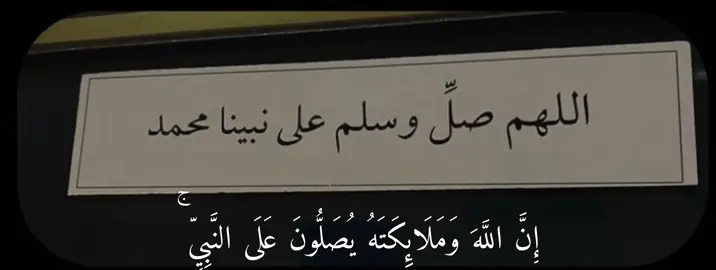 اللهم صلِّ وسلم على نبينا محمد
إِنَّ اللَّهَ وَمَلَائِكَتَهُ يُصَلُّونَ عَلَى النَّبِيِّ ۚ